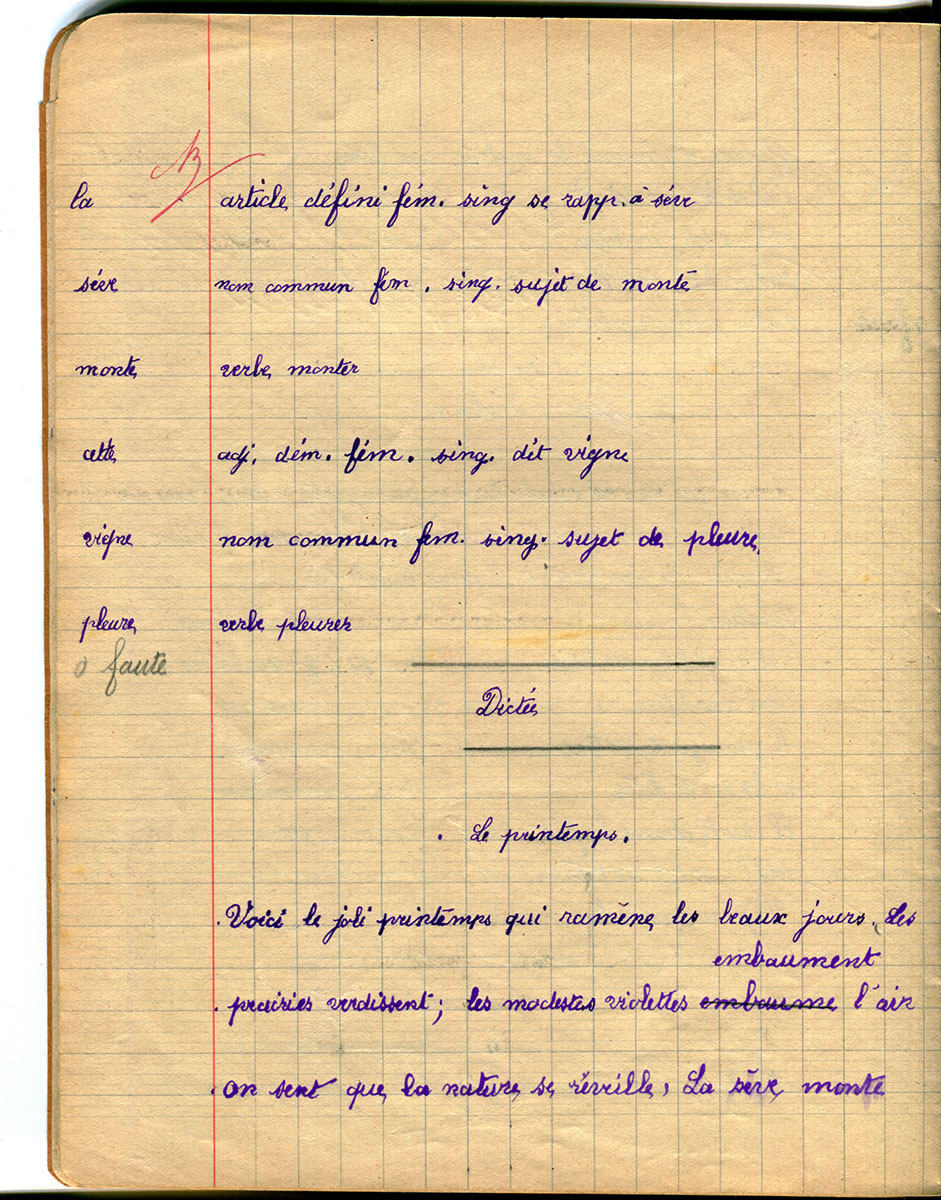 B
la article défini fém. sing se rapp. à sève
séve nom commun fém. sing. sujet de monte
monte verbe monter
cette adj. dém. fém. sing. dét vigne
vigne nom commun fém. sing. sujet de pleure
pleure verbe pleurer
0 faute
Dictée
Le printemps.
Voici le joli printemps qui ramène les beaux jours. Les
embaument
prairies verdissent; les modestes violettes embaume l'air
on sent que la nature se réveille, La sève monte